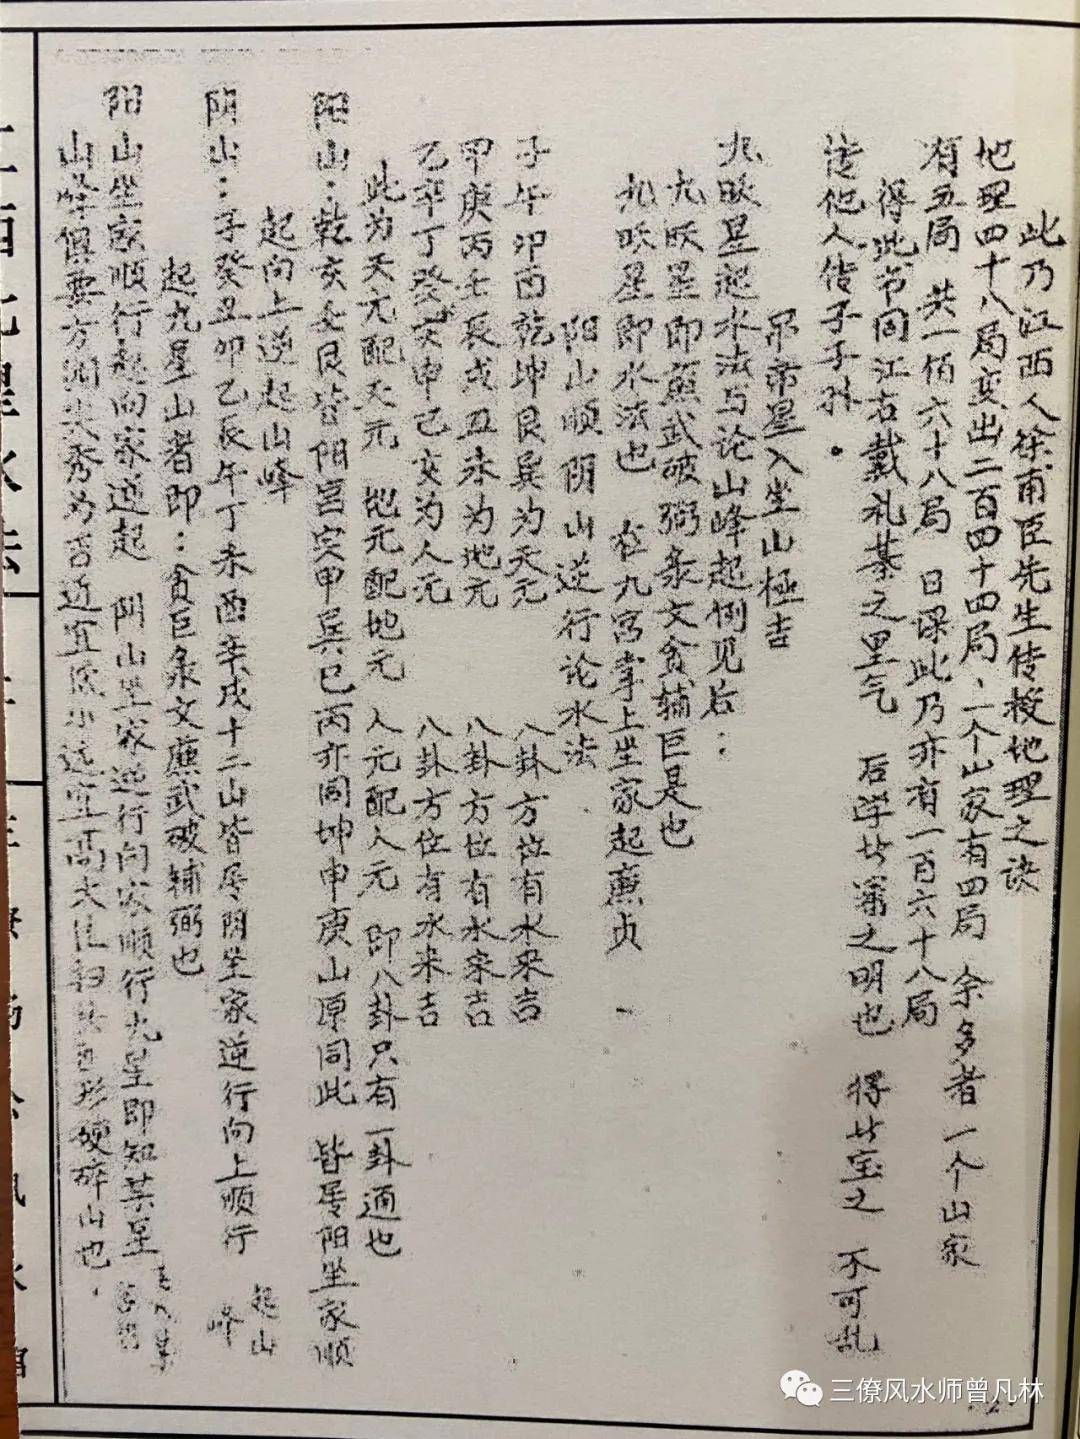 此乃江西人徐甫臣先生传授地理之诀
地理四十八局变出二百四十四局、一个山家有四局 余多者一个山家
有五局 共一佰六十八局 日课此乃亦有一百六十八局
得此书同江右戴礼基之里气 后学此篇之明也 得此宝之 不可乱
传他人传子子孙。
吊帝星入坐山極吉
九贱星起水法与论山峰起例见后：
九妖星即廉武破弼彔文贪辅巨是也
九妖星即水法也 在九宫掌上坐家起廉贞、
阳山顺阴山逆行论水法
子午卯酉乾坤艮巽为天元 八卦方位有水来吉
甲庚丙壬辰戌丑未为地元 八卦方位有水来吉
乙辛丁癸寅申巳亥为人元 八卦方位有水来吉
此为天元配天元 地元配地元 人元配人元 即八卦只有一卦通也
阳山：乾亥壬艮皆阳宫寅甲巽巳丙亦同坤申庚山原同此 皆属阳坐家顺
起向上逆起山峰
阴山：子癸丑卯乙辰午丁未酉辛戌十二山皆属阴坐家逆行向上顺行 起山峰
起九星山者即：贪巨彔文廉武破辅弼也
阳山坐家顺行起向家逆起 阴山坐家逆行向家顺行九星即知某星
山峰俱要方圆尖秀为吉近宜低小远宜高大 形破碎山也.
三僚风水师曾凡林